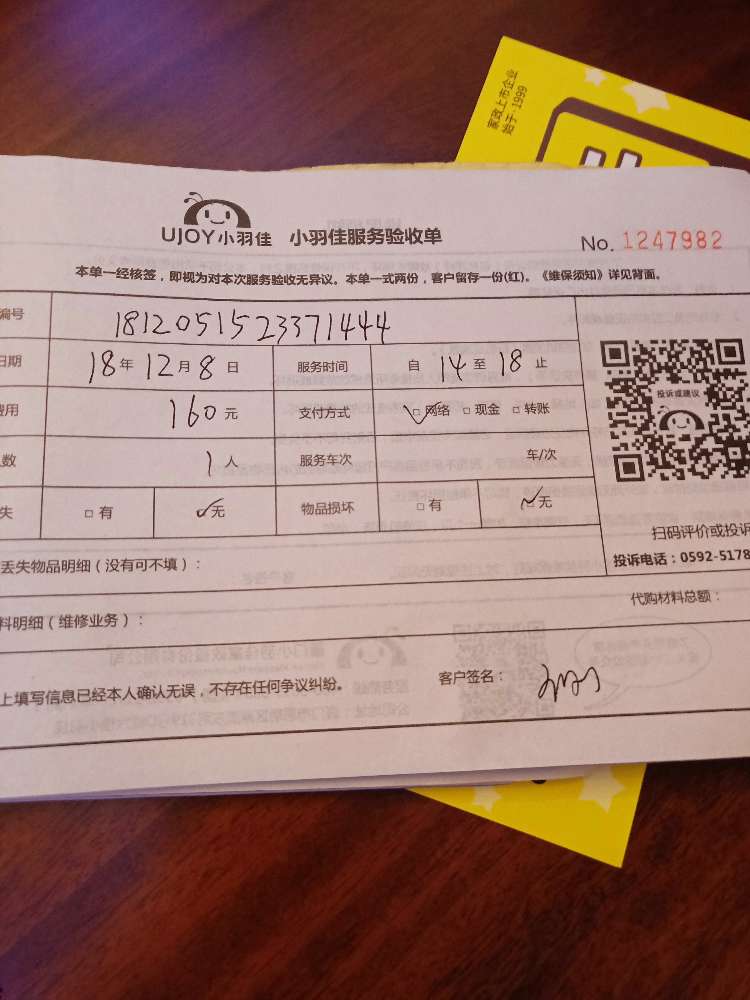 家政上市企业
始于·1999
UJOY小羽佳 小羽佳服务验收单 No. 1247982
本单一经核签，即视为对本次服务验收无异议。本单一式两份，客户留存一份(红)。《维保须知》详见背面。
编号 1812051523371444
日期 18年12月8日 服务时间 自14至18止
费用 160元 支付方式 ☑网络 □现金 □转账
人数 1人 服务车次 车/次
失 □有 ☑无 物品损坏 □有 ☑无
投诉或建议
扫码评价或投诉
投诉电话：0592-5178
丢失物品明细（没有可不填）：
代购材料总额：
料明细（维修业务）：
上填写信息已经本人确认无误，不存在任何争议纠纷。 客户签名：